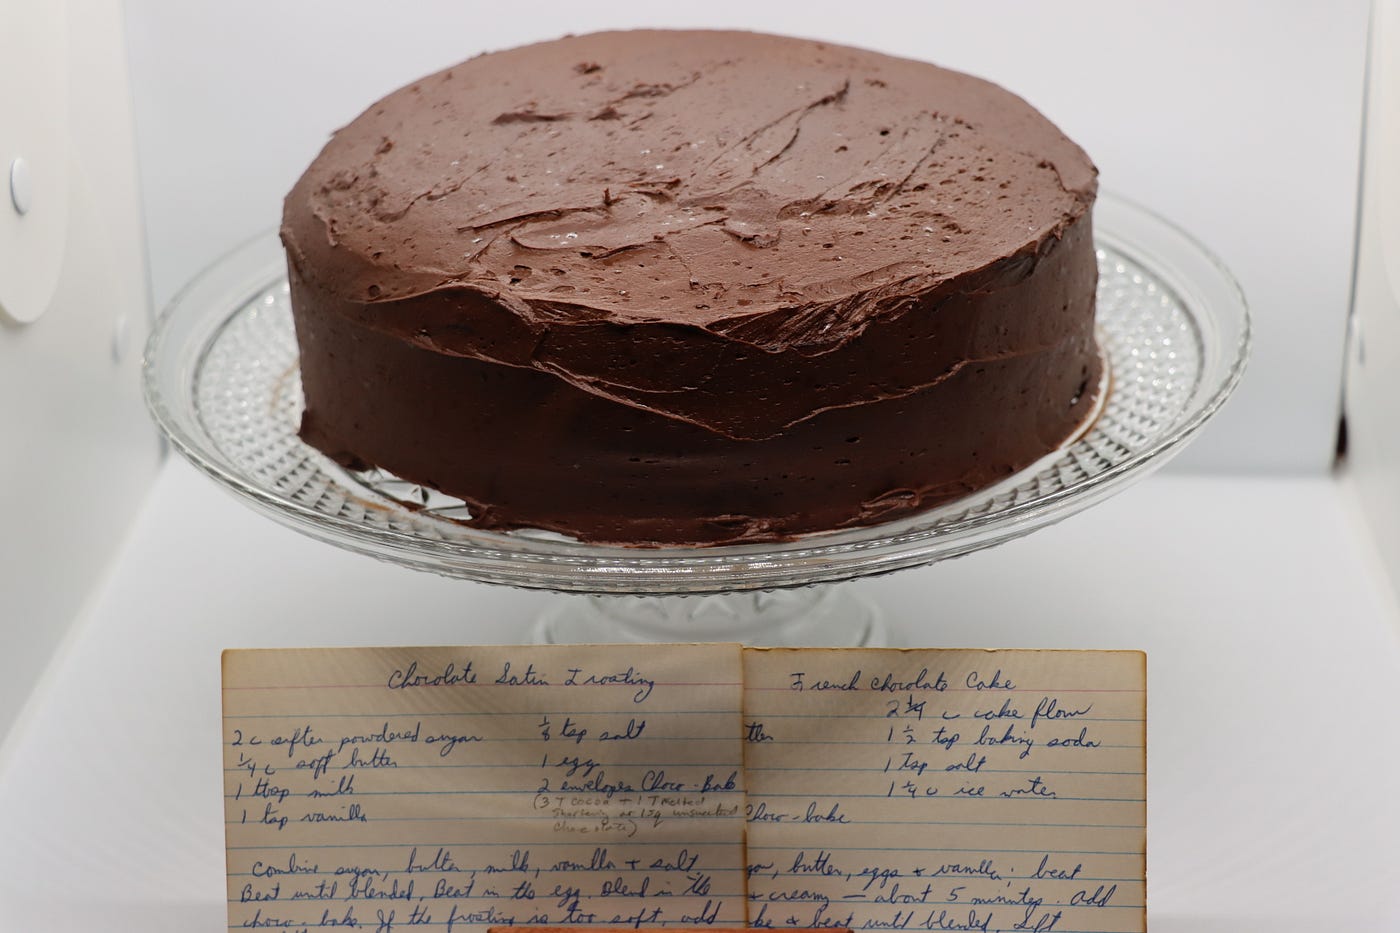 Chocolate Satin Frosting
2 c sifter powdered sugar
1/4 c soft butter
1 tbsp milk
1 tsp vanilla
1/8 tsp salt
1 egg
2 envelopes Choco-Bake
(3 T cocoa + 1 T melted
shortening or 1 sq unsweetened
chocolate)
Combine sugar, butter, milk, vanilla + salt.
Beat until blended. Beat in the egg. Blend in the
choco-bake. If the frosting is too soft, add
French Chocolate Cake
2 1/4 c cake flour
1 1/2 tsp baking soda
1 tsp salt
1 1/4 c ice water
Choco-bake
butter, eggs + vanilla; beat
+ creamy — about 5 minutes. Add
& beat until blended. Sift